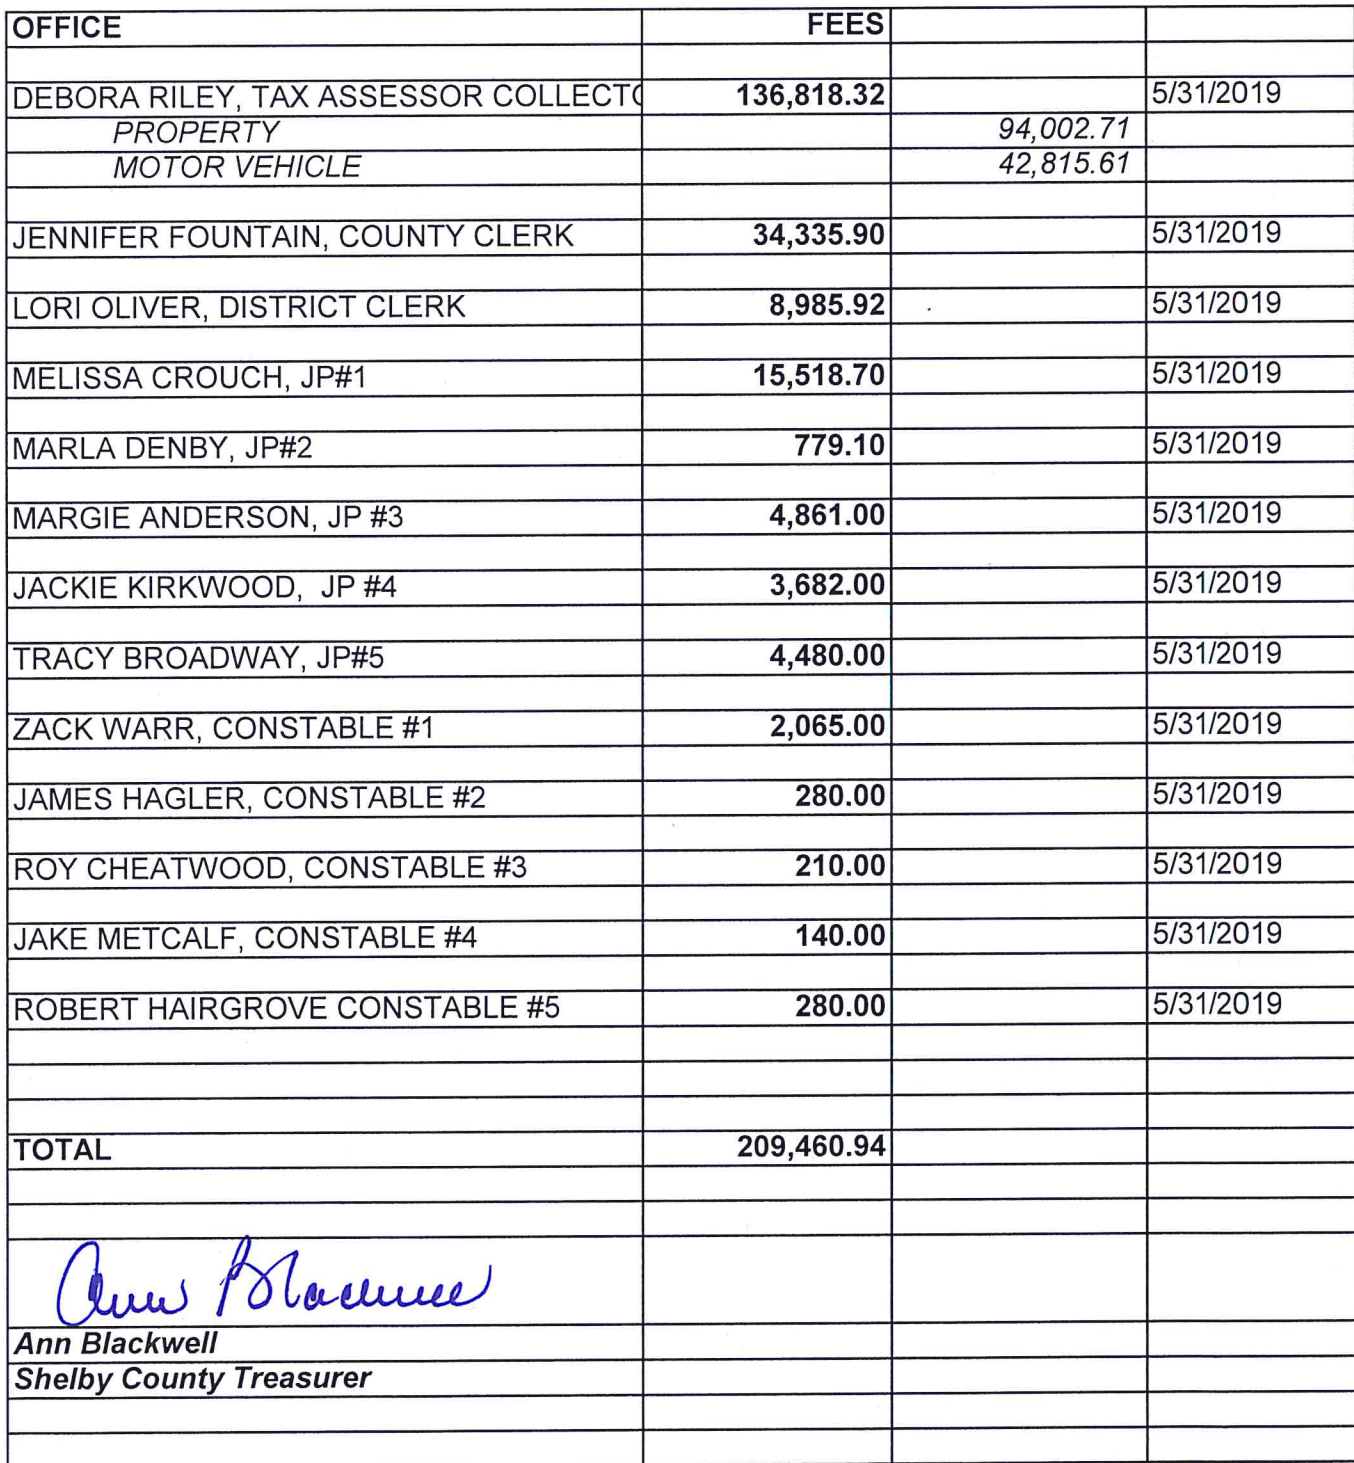 OFFICE FEES
DEBORA RILEY, TAX ASSESSOR COLLECTO 136,818.32 5/31/2019
PROPERTY 94,002.71
MOTOR VEHICLE 42,815.61
JENNIFER FOUNTAIN, COUNTY CLERK 34,335.90 5/31/2019
LORI OLIVER, DISTRICT CLERK 8,985.92 5/31/2019
MELISSA CROUCH, JP#1 15,518.70 5/31/2019
MARLA DENBY, JP#2 779.10 5/31/2019
MARGIE ANDERSON, JP #3 4,861.00 5/31/2019
JACKIE KIRKWOOD, JP #4 3,682.00 5/31/2019
TRACY BROADWAY, JP#5 4,480.00 5/31/2019
ZACK WARR, CONSTABLE #1 2,065.00 5/31/2019
JAMES HAGLER, CONSTABLE #2 280.00 5/31/2019
ROY CHEATWOOD, CONSTABLE #3 210.00 5/31/2019
JAKE METCALF, CONSTABLE #4 140.00 5/31/2019
ROBERT HAIRGROVE CONSTABLE #5 280.00 5/31/2019
TOTAL 209,460.94
Ann Blackwell
Ann Blackwell
Shelby County Treasurer